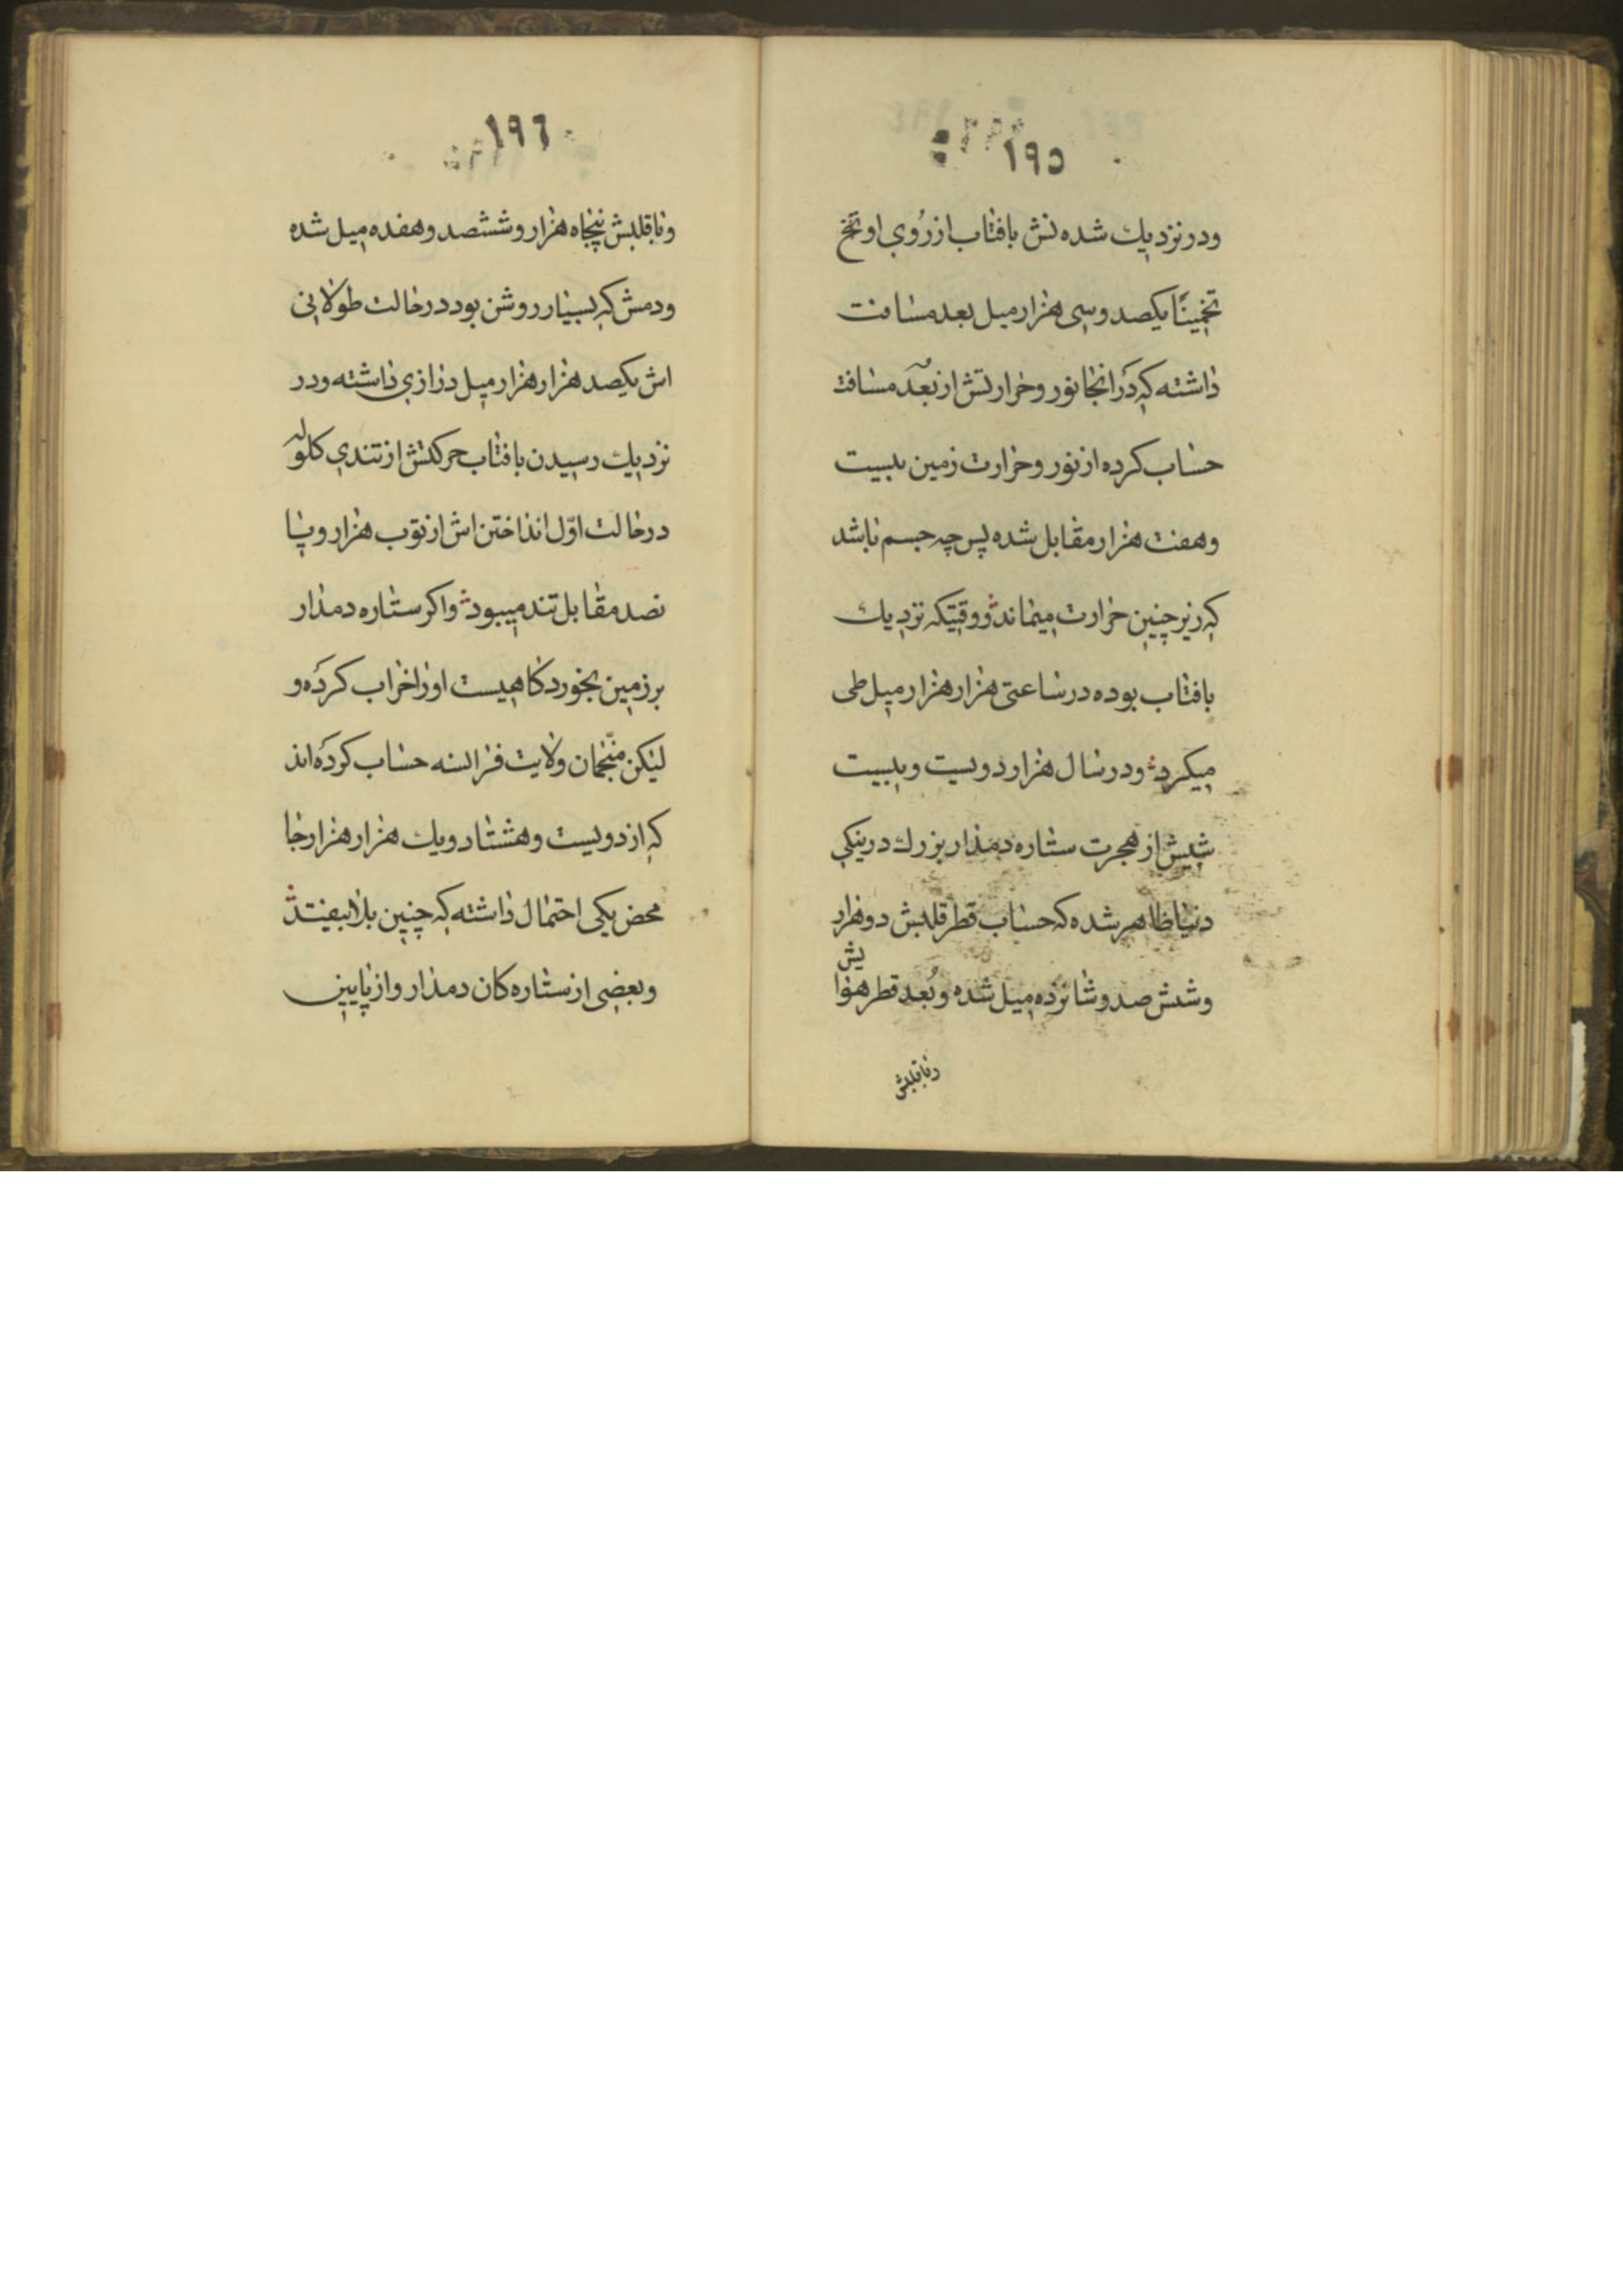 ١٩٥
ودر نزديك شده نش بافتاب از رُوي او تخ
تخمينًا يكصد وسى هزار ميل بعد مسافت
داشته كه در انجا نور وحرارتش از بُعد مسافت
حساب كرده از نور وحرارت زمين بيست
وهفت هزار مقابل شده پس چه جسم باشد
كه زير چنين حرارت ميماند ووقتيكه نزديك
بافتاب بوده در ساعتى هزار هزار ميل طى
ميكرد ودر سال هزار دويست وبيست
شيش از هجرت ستاره دمدار بزرك در ينكى
دنيا ظاهر شده كه حساب قطر قلبش دو هزار
وشش صد وشانزده ميل شده وبُعد قطر هوا
يش
وتا قلبش
١٩٦
وتا قلبش پنجاه هزار وششصد وهفده ميل شده
ودمش كه بسيار روشن بود در حالت طولانى
اش يكصد هزار هزار ميل درازي داشته ودر
نزديك رسيدن بافتاب حركتش از تندي كلوله
در حالت اوّل انداختن اش از توب هزار وپا
نصد مقابل تند ميبود واكر ستاره دمدار
بر زمين بخورد كاهيست اورا خراب كرده و
ليكن منّجمان ولايت فرانسه حساب كرده اند
كه از دويست وهشتاد ويك هزار هزار جا
محض يكى احتمال داشته كه چنين بلا بيفتد
وبعضى از ستاره كان دمدار واز پايين